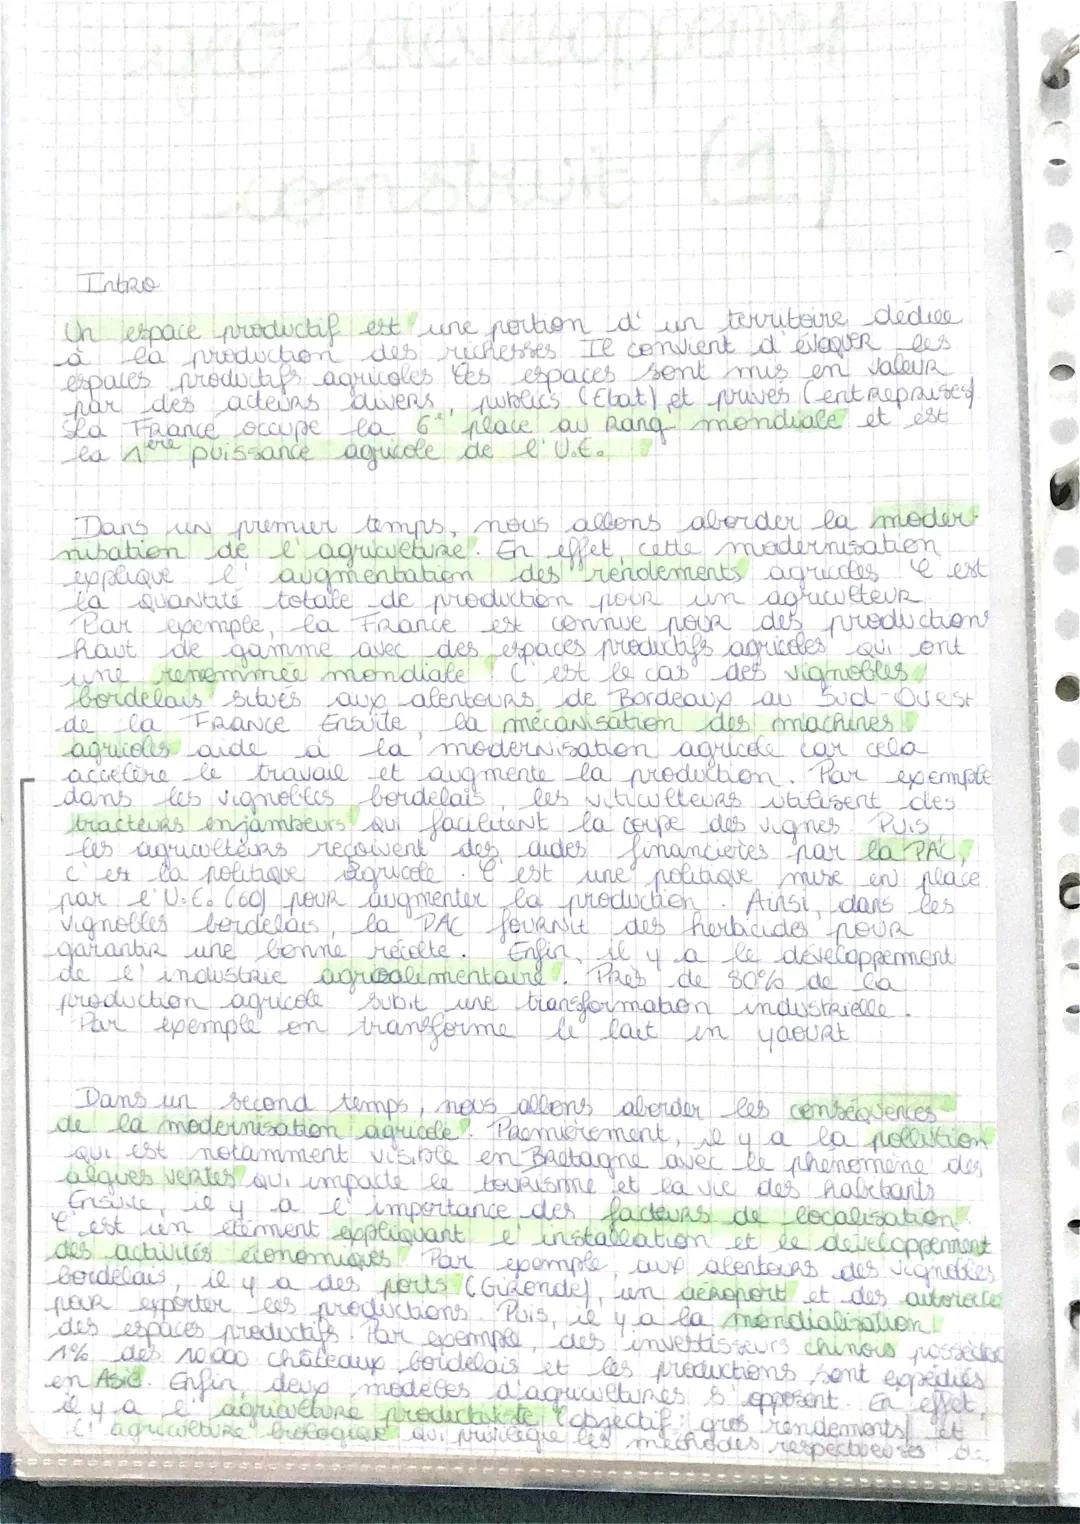 géo développement
construit (1.)
Intro
Un espace productif est une portion d'un territoire dédiée
à la production des richesses Il convient d'évoquer les
espaces productifs agricoles Ces espaces sont mis en valeur
par des acteurs divers, publics (Etat) et privés (entreprises)
La France occupe la 6e place au rang mondiale et est
la 1ère puissance agricole de l'U.E.
Dans un premier temps, nous allons aborder la moder-
nisation de l'agriculture. En effet, cette modernisation
explique l'augmentation des rendements agricoles C'est
la quantité totale de production pour un agriculteur
Par exemple, la France est connue pour des productions
haut de gamme avec des espaces productifs agricoles qui ont
une renommée mondiale. C'est le cas des vignobles
bordelais situés aux alentours de Bordeaux au Sud-Ouest
de la France Ensuite, la mécanisation des machines
agricoles aide à la modernisation agricole car cela
accélère le travail et augmente la production. Par exemple
dans les vignobles bordelais, les viticulteurs utilisent des
tracteurs enjambeurs qui facilitent la coupe des vignes Puis,
les agriculteurs reçoivent des aides financières par la PAC,
c'es la politique agricole. C'est une politique mise en place
par l'U.E. (60) pour augmenter la production. Ainsi, dans les
vignobles bordelais, la PAC fournit des herbicides pour
garantir une bonne récolte. Enfin, il y a le développement
de l'industrie agroalimentaire. Près de 80% de la
production agricole subit une transformation industrielle.
Par exemple on transforme le lait en yaourt
Dans un second temps, nous allons aborder les conséquences
de la modernisation agricole. Premièrement, il y a la pollution
qui est notamment visible en Bretagne avec le phénomène des
algues vertes qui impacte le tourisme et la vie des habitants
Ensuite, il y a l'importance des facteurs de localisation.
C'est un élément expliquant l'installation et le développement
des activités économiques. Par exemple, aux alentours des vignobles
bordelais, il y a des ports (Gironde), un aéroport et des autoroutes
pour exporter les productions. Puis, il y a la mondialisation
des espaces productifs. Par exemple, des investisseurs chinois possèdent
1% des 10 000 châteaux bordelais et les productions sont expédiés
en Asie. Enfin, deux modèles d'agricultures s'opposent. En effet,
il y a l'agriculture productiviste (objectif: gros rendements) et
l'agriculture biologique qui privilégie les méthodes respectueuses de